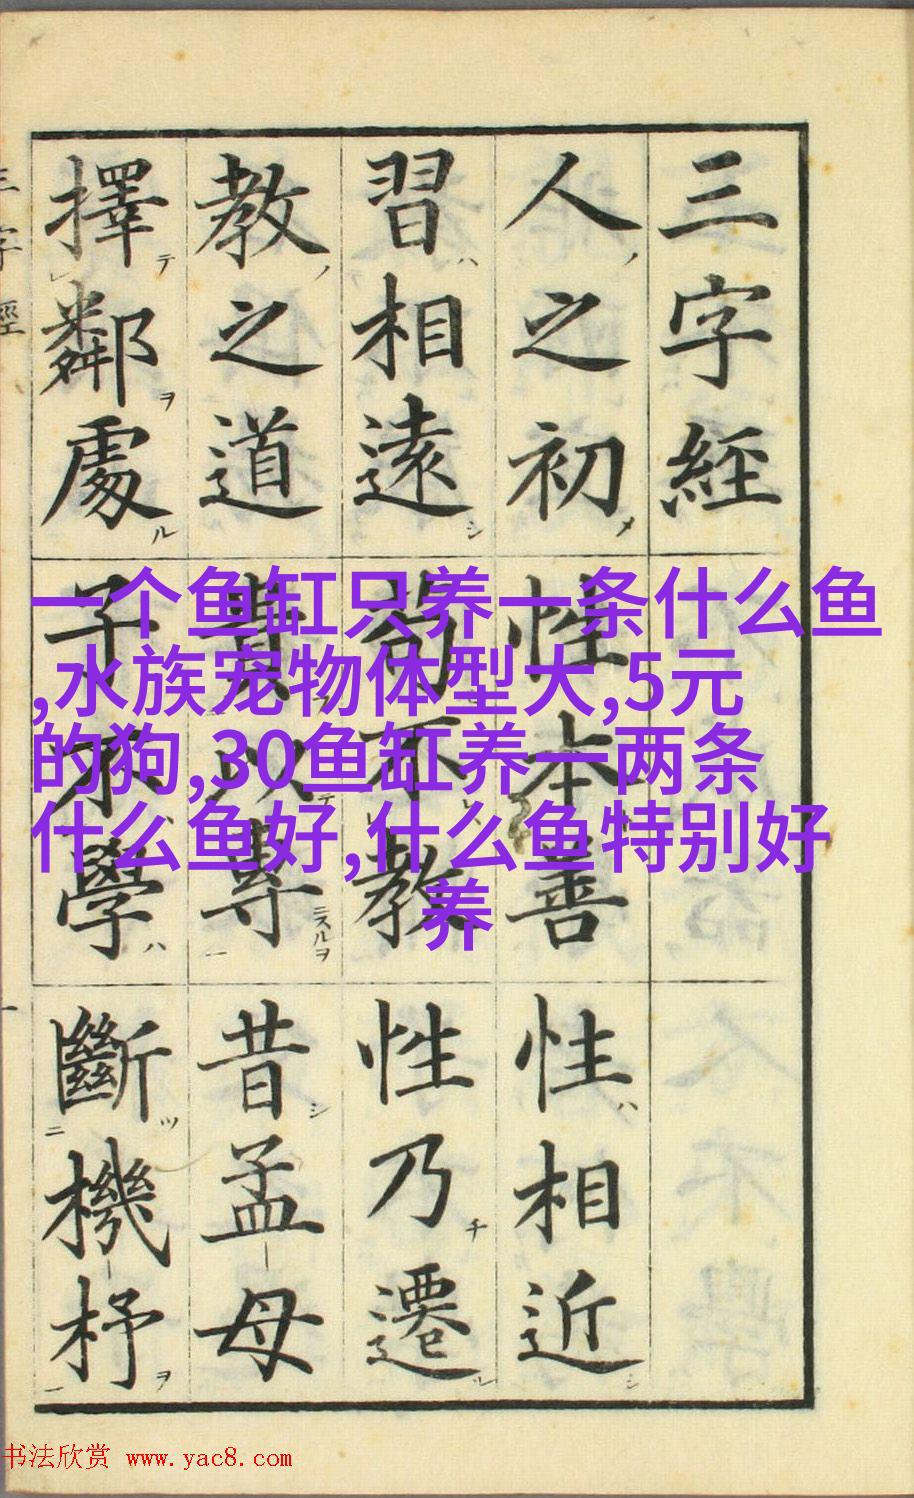 三字経
人之初 性本善 性相近
習相遠 苟不教 性乃遷
教之道 貴以專 昔孟母
擇鄰處 子不學 斷機杼
三字經
一个鱼缸只养一条什么鱼
,水族宠物体型大,5元
的狗,30鱼缸养一两条
什么鱼好,什么鱼特别好
养
书法欣赏 www.yac8.com